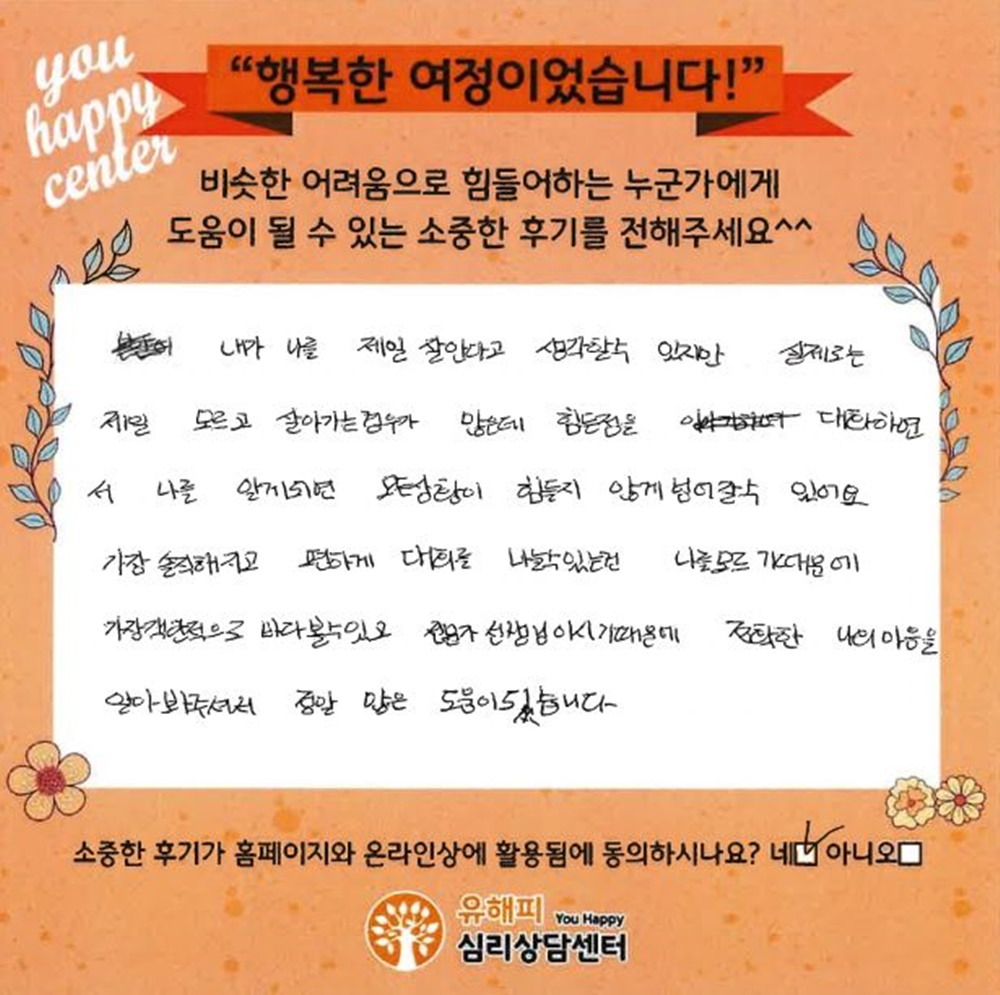 you
happy
center
“행복한 여정이었습니다!”
비슷한 어려움으로 힘들어하는 누군가에게
도움이 될 수 있는 소중한 후기를 전해주세요^^
내가 나를 제일 잘안다고 생각할수 있지만 실제로는
제일 모르고 살아가는경우가 많은데 힘든점을 대화하면
서 나를 알게되면 모든상황이 힘들지 않게 넘어갈수 있어요
가장 솔직해지고 편하게 대화를 나눌수있는건 나를모르기때문에
가장객관적으로 바라볼수있고 전문가 선생님이시기때문에 정확한 나의마음을
알아봐주셔서 정말 많은 도움이되었습니다
소중한 후기가 홈페이지와 온라인상에 활용됨에 동의하시나요? 네☑ 아니오☐
유해피 You Happy
심리상담센터